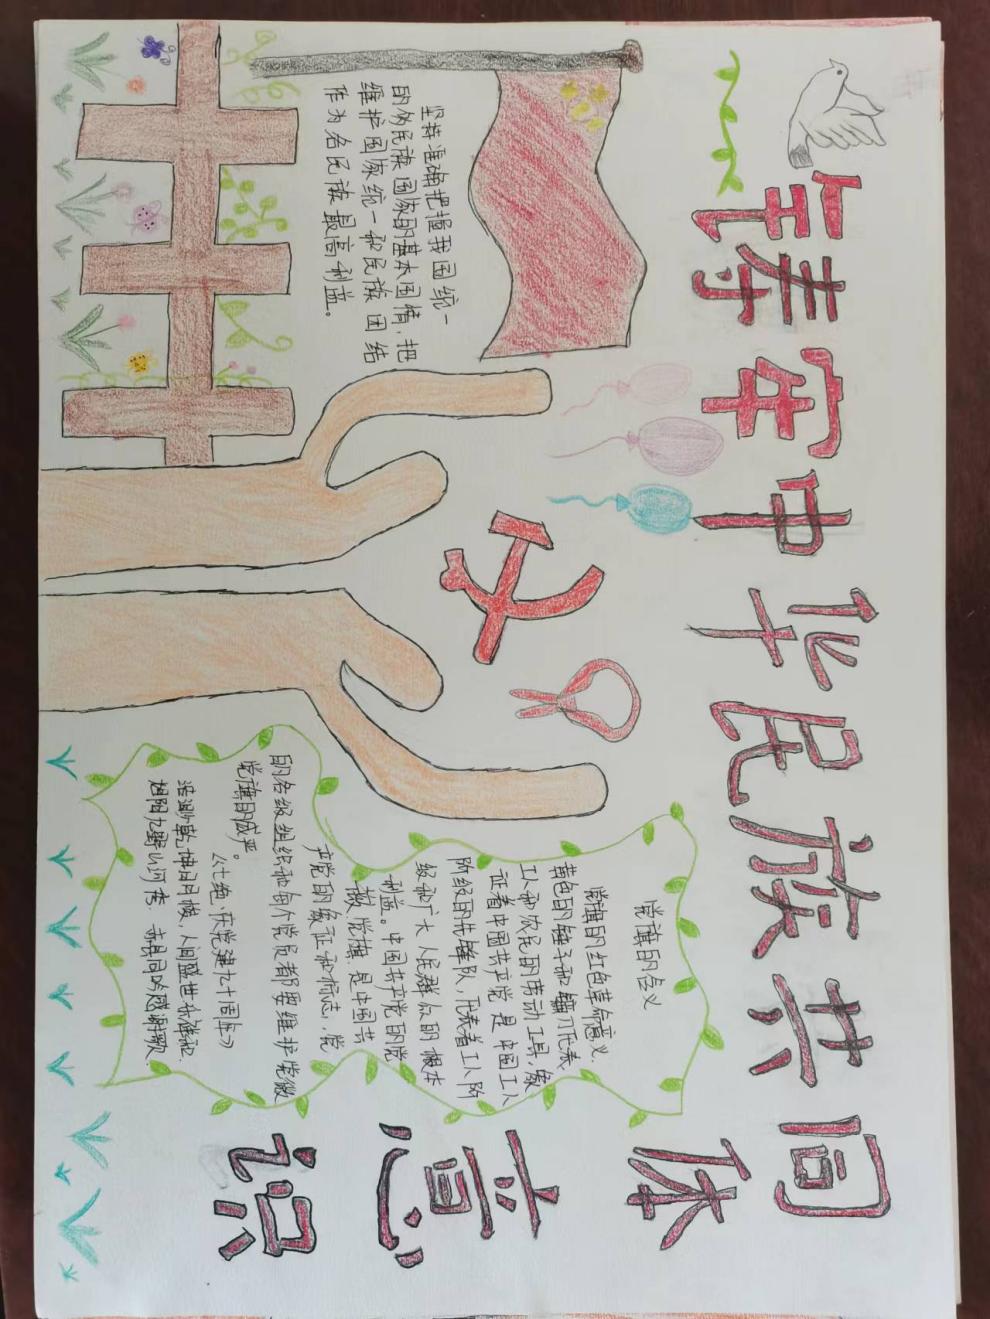 铸牢中华民族共同体意识
坚持准确把握我国统一
的多民族国家的基本国情，把
维护国家统一和民族团结
作为各民族最高利益。
党旗的含义
党旗的红色革命意义，
黄色的锤子和镰刀代表
工人和农民的劳动工具，象
征着中国共产党是中国工人
阶级的先锋队，代表着工人阶
级和广大人民群众的根本
利益。中国共产党的党
徽党旗是中国共
产党的象征和标志，党
的各级组织和每个党员都要维护党徽
党旗的威严。
《七绝·庆党建九十周年》
浩渺乾坤日月梭，人间盛世布雄秘，
旭阳九野山河秀，赤县同吟感谢歌